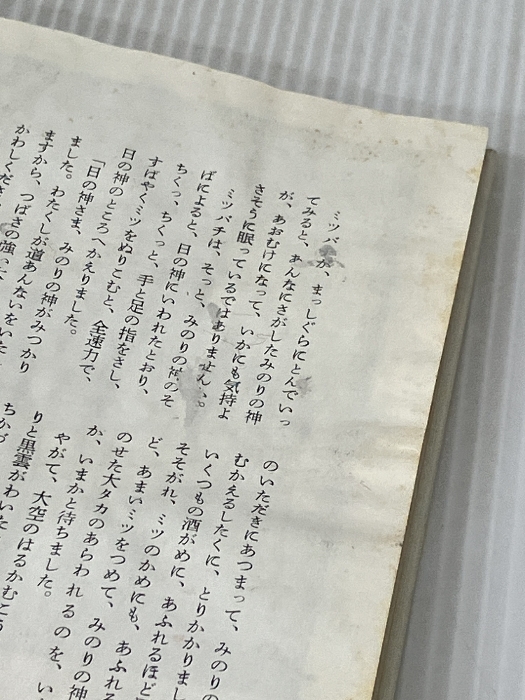 ミツバチが、まっしぐらにとんでいっ
てみると、あんなにさがしたみのりの神
が、あおむけになって、いかにも気持よ
さそうに眠っているではありませんか。
ミツバチは、そっと、みのりの神のそ
ばによると、日の神にいわれたとおり、
ちくっ、ちくっと、手と足の指をさし、
すばやくミツをぬりこむと、全速力で、
日の神のところへかえりました。
「日の神さま、みのりの神がみつかり
ました。わたくしが道あんないをいた
ますから、つばさの強い
かわしくださ
のいただきにあつまって、みのりの
むかえるしたくに、とりかかりまし
いくつもの酒がめに、あふれるほど
そそがれ、ミツのかめにも、あふれる
ど、あまいミツをつめて、みのりの神
のせた大タカのあらわれるのを、い
か、いまかと待ちました。
やがて、大空のはるかむこう
りと黒雲がわいた
ちかづ